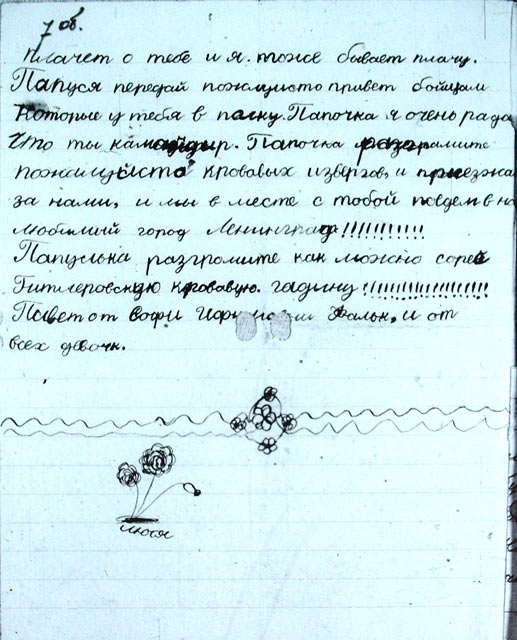 7 об.
плачет о тебе и я. тоже бывает плачу.
Папуся передай пожалусто привет бойцам
Которые у тебя в полку. Папочка я очень рада
Что ты камандир. Папочка разграмите
пожалуиста кровавых извергов, и приезжа
за нами, и мы в месте с тобой поедем в на
любимий город Ленинград!!!!!!!!!!!
Папулька разгромите как можно сорее
Гитлеровскую кровавую гадину!!!!!!!!!!!!!!!!!!!
Пивет от Софи и от
всех девочк.
Люся